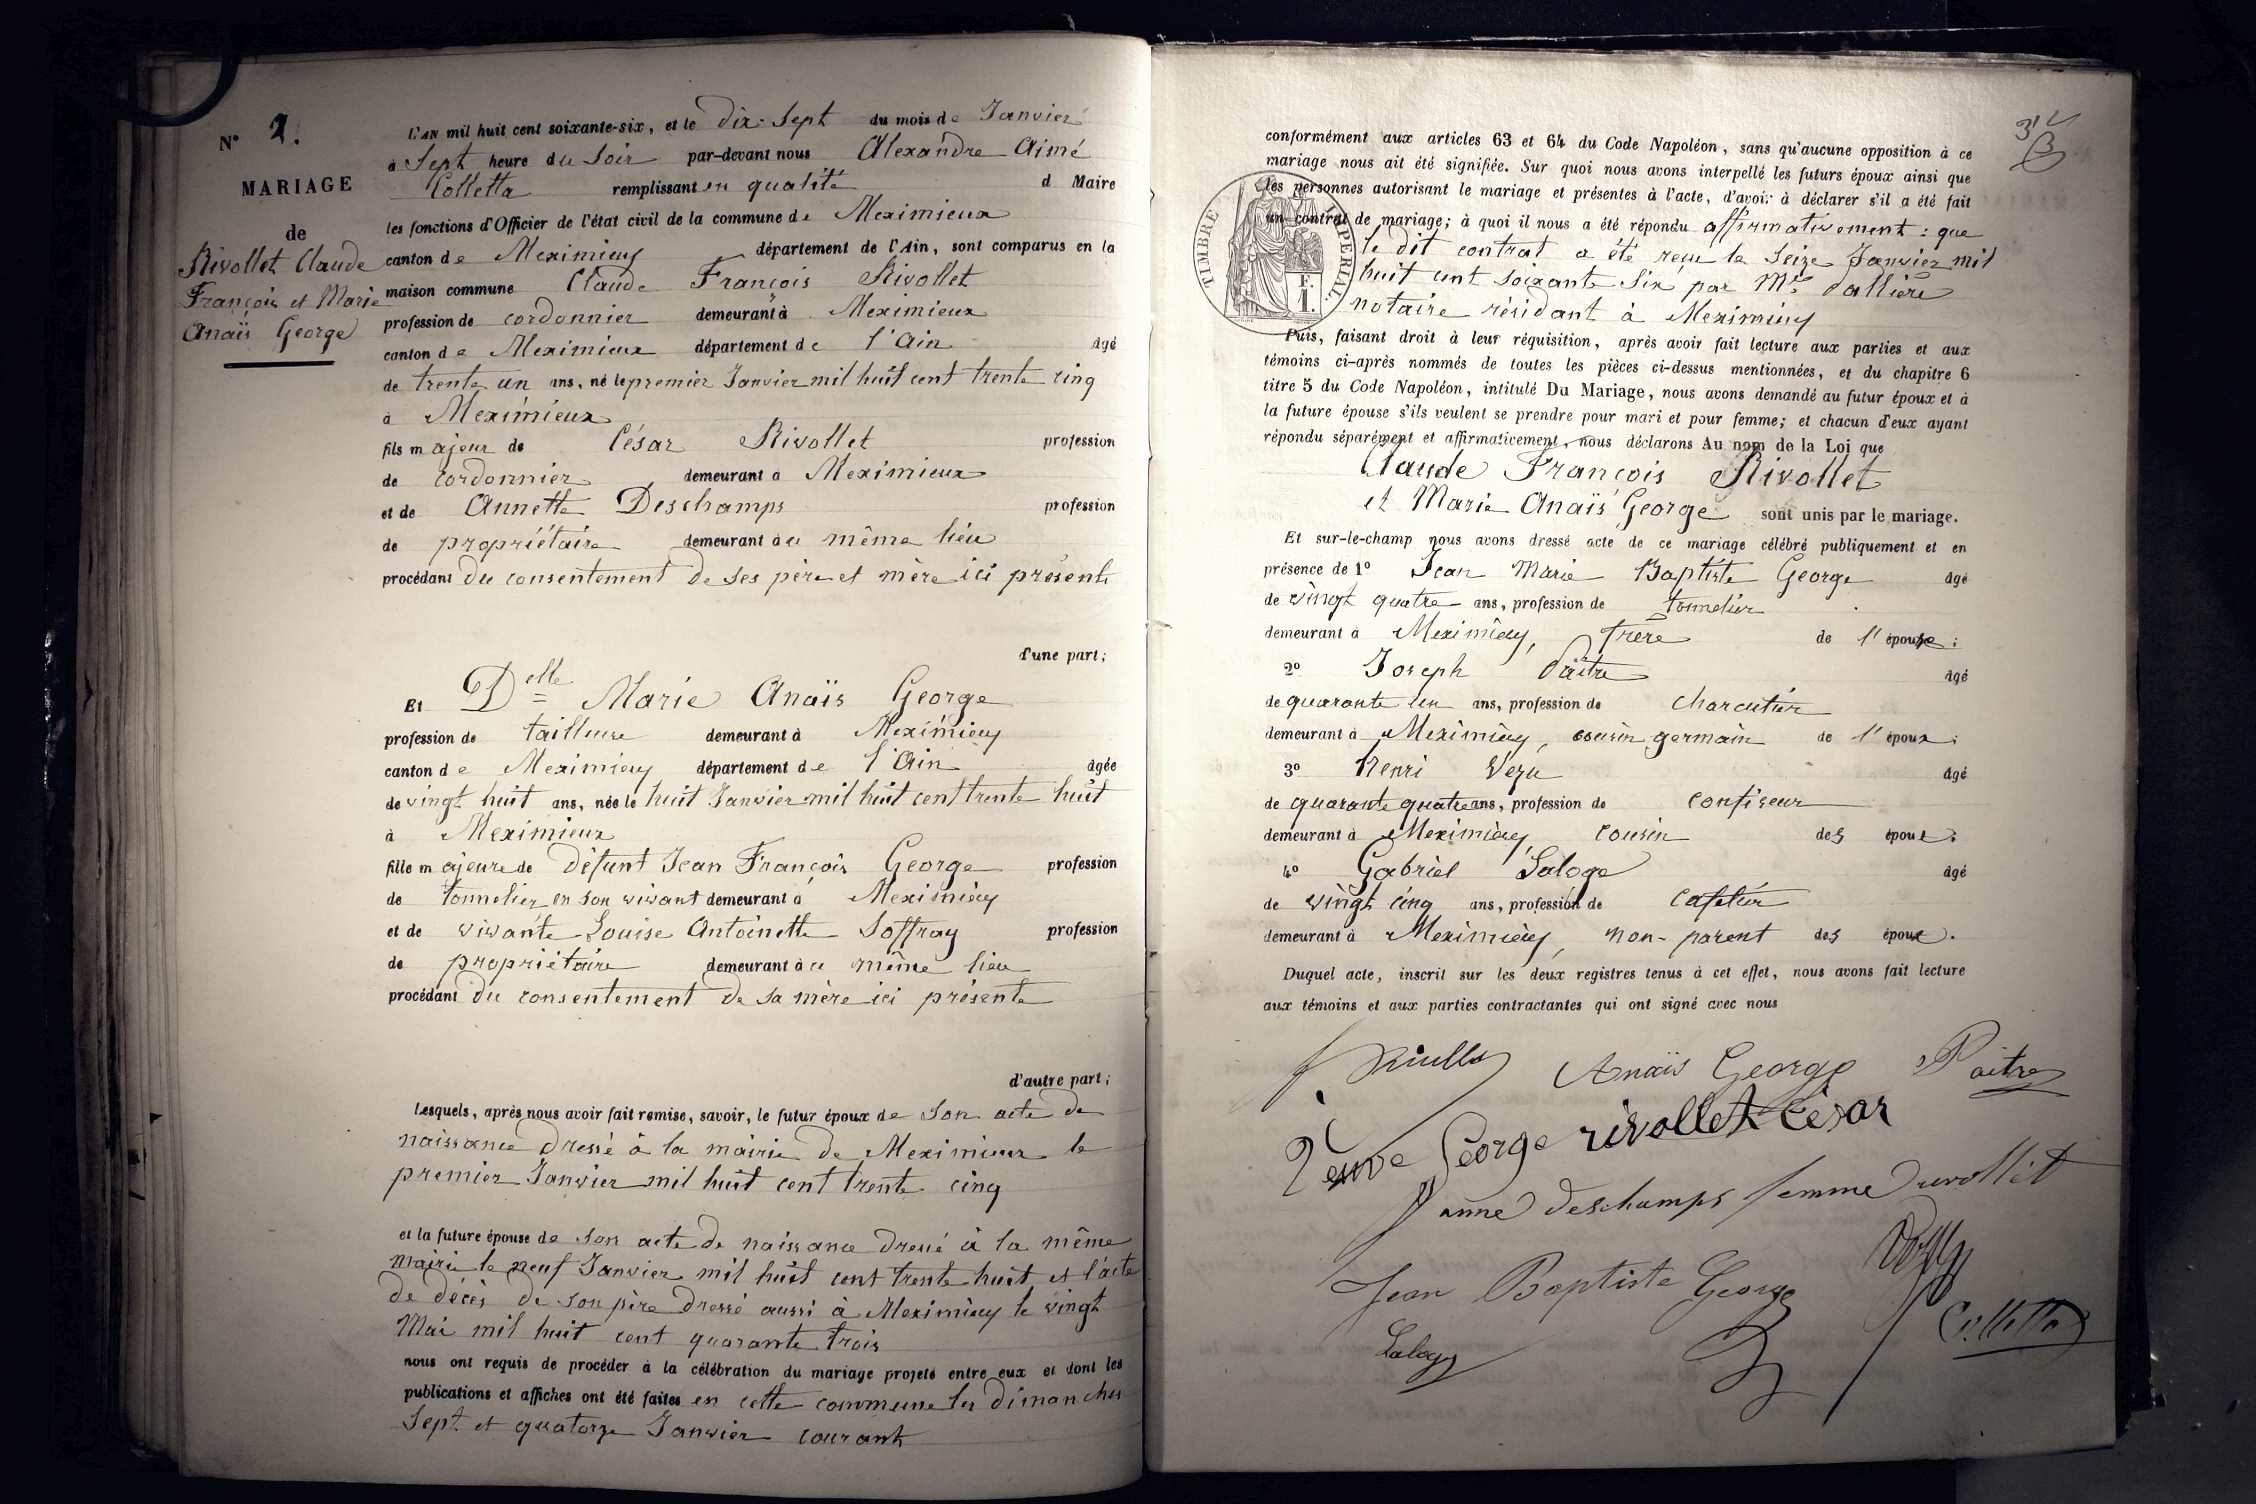 N° 2.
MARIAGE
de
Rivollet Claude
François et Marie
Anaïs George
L'AN mil huit cent soixante-six, et le dix-sept du mois de Janvier
à Sept heure du Soir par-devant nous Alexandre Aimé
Colletta remplissant en qualité d Maire
les fonctions d'Officier de l'état civil de la commune de Meximieux
canton de Meximieux département de l'Ain, sont comparus en la
maison commune Claude François Rivollet
profession de cordonnier demeurant à Meximieux
canton de Meximieux département de l'Ain âgé
de trente un ans, né le premier Janvier mil huit cent trente cinq
à Meximieux
fils majeur de César Rivollet profession
de cordonnier demeurant à Meximieux
et de Annette Deschamps profession
de propriétaire demeurant au même lieu
procédant du consentement de ses père et mère ici présents
d'une part;
Et Delle Marie Anaïs George
profession de tailleuse demeurant à Meximieux
canton de Meximieux département de l'Ain âgée
de vingt huit ans, née le huit Janvier mil huit cent trente huit
à Meximieux
fille majeure de défunt Jean François George profession
de tonnelier en son vivant demeurant à Meximieux
et de vivante Louise Antoinette Soffray profession
de propriétaire demeurant au même lieu
procédant du consentement de sa mère ici présente
d'autre part;
Lesquels, après nous avoir fait remise, savoir, le futur époux de son acte de
naissance dressé à la mairie de Meximieux le
premier Janvier mil huit cent trente cinq
et la future épouse de son acte de naissance dressé à la même
mairie le neuf Janvier mil huit cent trente huit et l'acte
de décès de son père dressé aussi à Meximieux le vingt
Mai mil huit cent quarante trois
nous ont requis de procéder à la célébration du mariage projeté entre eux et dont les
publications et affiches ont été faites en cette commune les dimanches
Sept et quatorze Janvier courant
conformément aux articles 63 et 64 du Code Napoléon, sans qu'aucune opposition à ce
mariage nous ait été signifiée. Sur quoi nous avons interpellé les futurs époux ainsi que
les personnes autorisant le mariage et présentes à l'acte, d'avoir à déclarer s'il a été fait
un contrat de mariage; à quoi il nous a été répondu affirmativement : que
le dit contrat a été reçu le Seize Janvier mil
huit cent soixante six par Me Dallière
notaire résidant à Meximieux
TIMBRE IMPERIAL.
F.
1.
Puis, faisant droit à leur réquisition, après avoir fait lecture aux parties et aux
témoins ci-après nommés de toutes les pièces ci-dessus mentionnées, et du chapitre 6
titre 5 du Code Napoléon, intitulé Du Mariage, nous avons demandé au futur époux et à
la future épouse s'ils veulent se prendre pour mari et pour femme; et chacun d'eux ayant
répondu séparément et affirmativement, nous déclarons Au nom de la Loi que
Claude François Rivollet
et Marie Anaïs George sont unis par le mariage.
Et sur-le-champ nous avons dressé acte de ce mariage célébré publiquement et en
présence de 1° Jean Marie Baptiste George âgé
de vingt quatre ans, profession de tonnelier
demeurant à Meximieux, frère de l'épouse;
2° Joseph Paître âgé
de quarante un ans, profession de charcutier
demeurant à Meximieux, cousin germain de l'époux;
3° Henri Vezu âgé
de quarante quatre ans, profession de confiseur
demeurant à Meximieux, cousin des époux;
4° Gabriel Laloge âgé
de vingt cinq ans, profession de cafetier
demeurant à Meximieux, non-parent des époux.
Duquel acte, inscrit sur les deux registres tenus à cet effet, nous avons fait lecture
aux témoins et aux parties contractantes qui ont signé avec nous
Anaïs George Paitre
Veuve George rivollet César
anne deschamps femme rivollet
Jean Baptiste George
Laloge Colletta